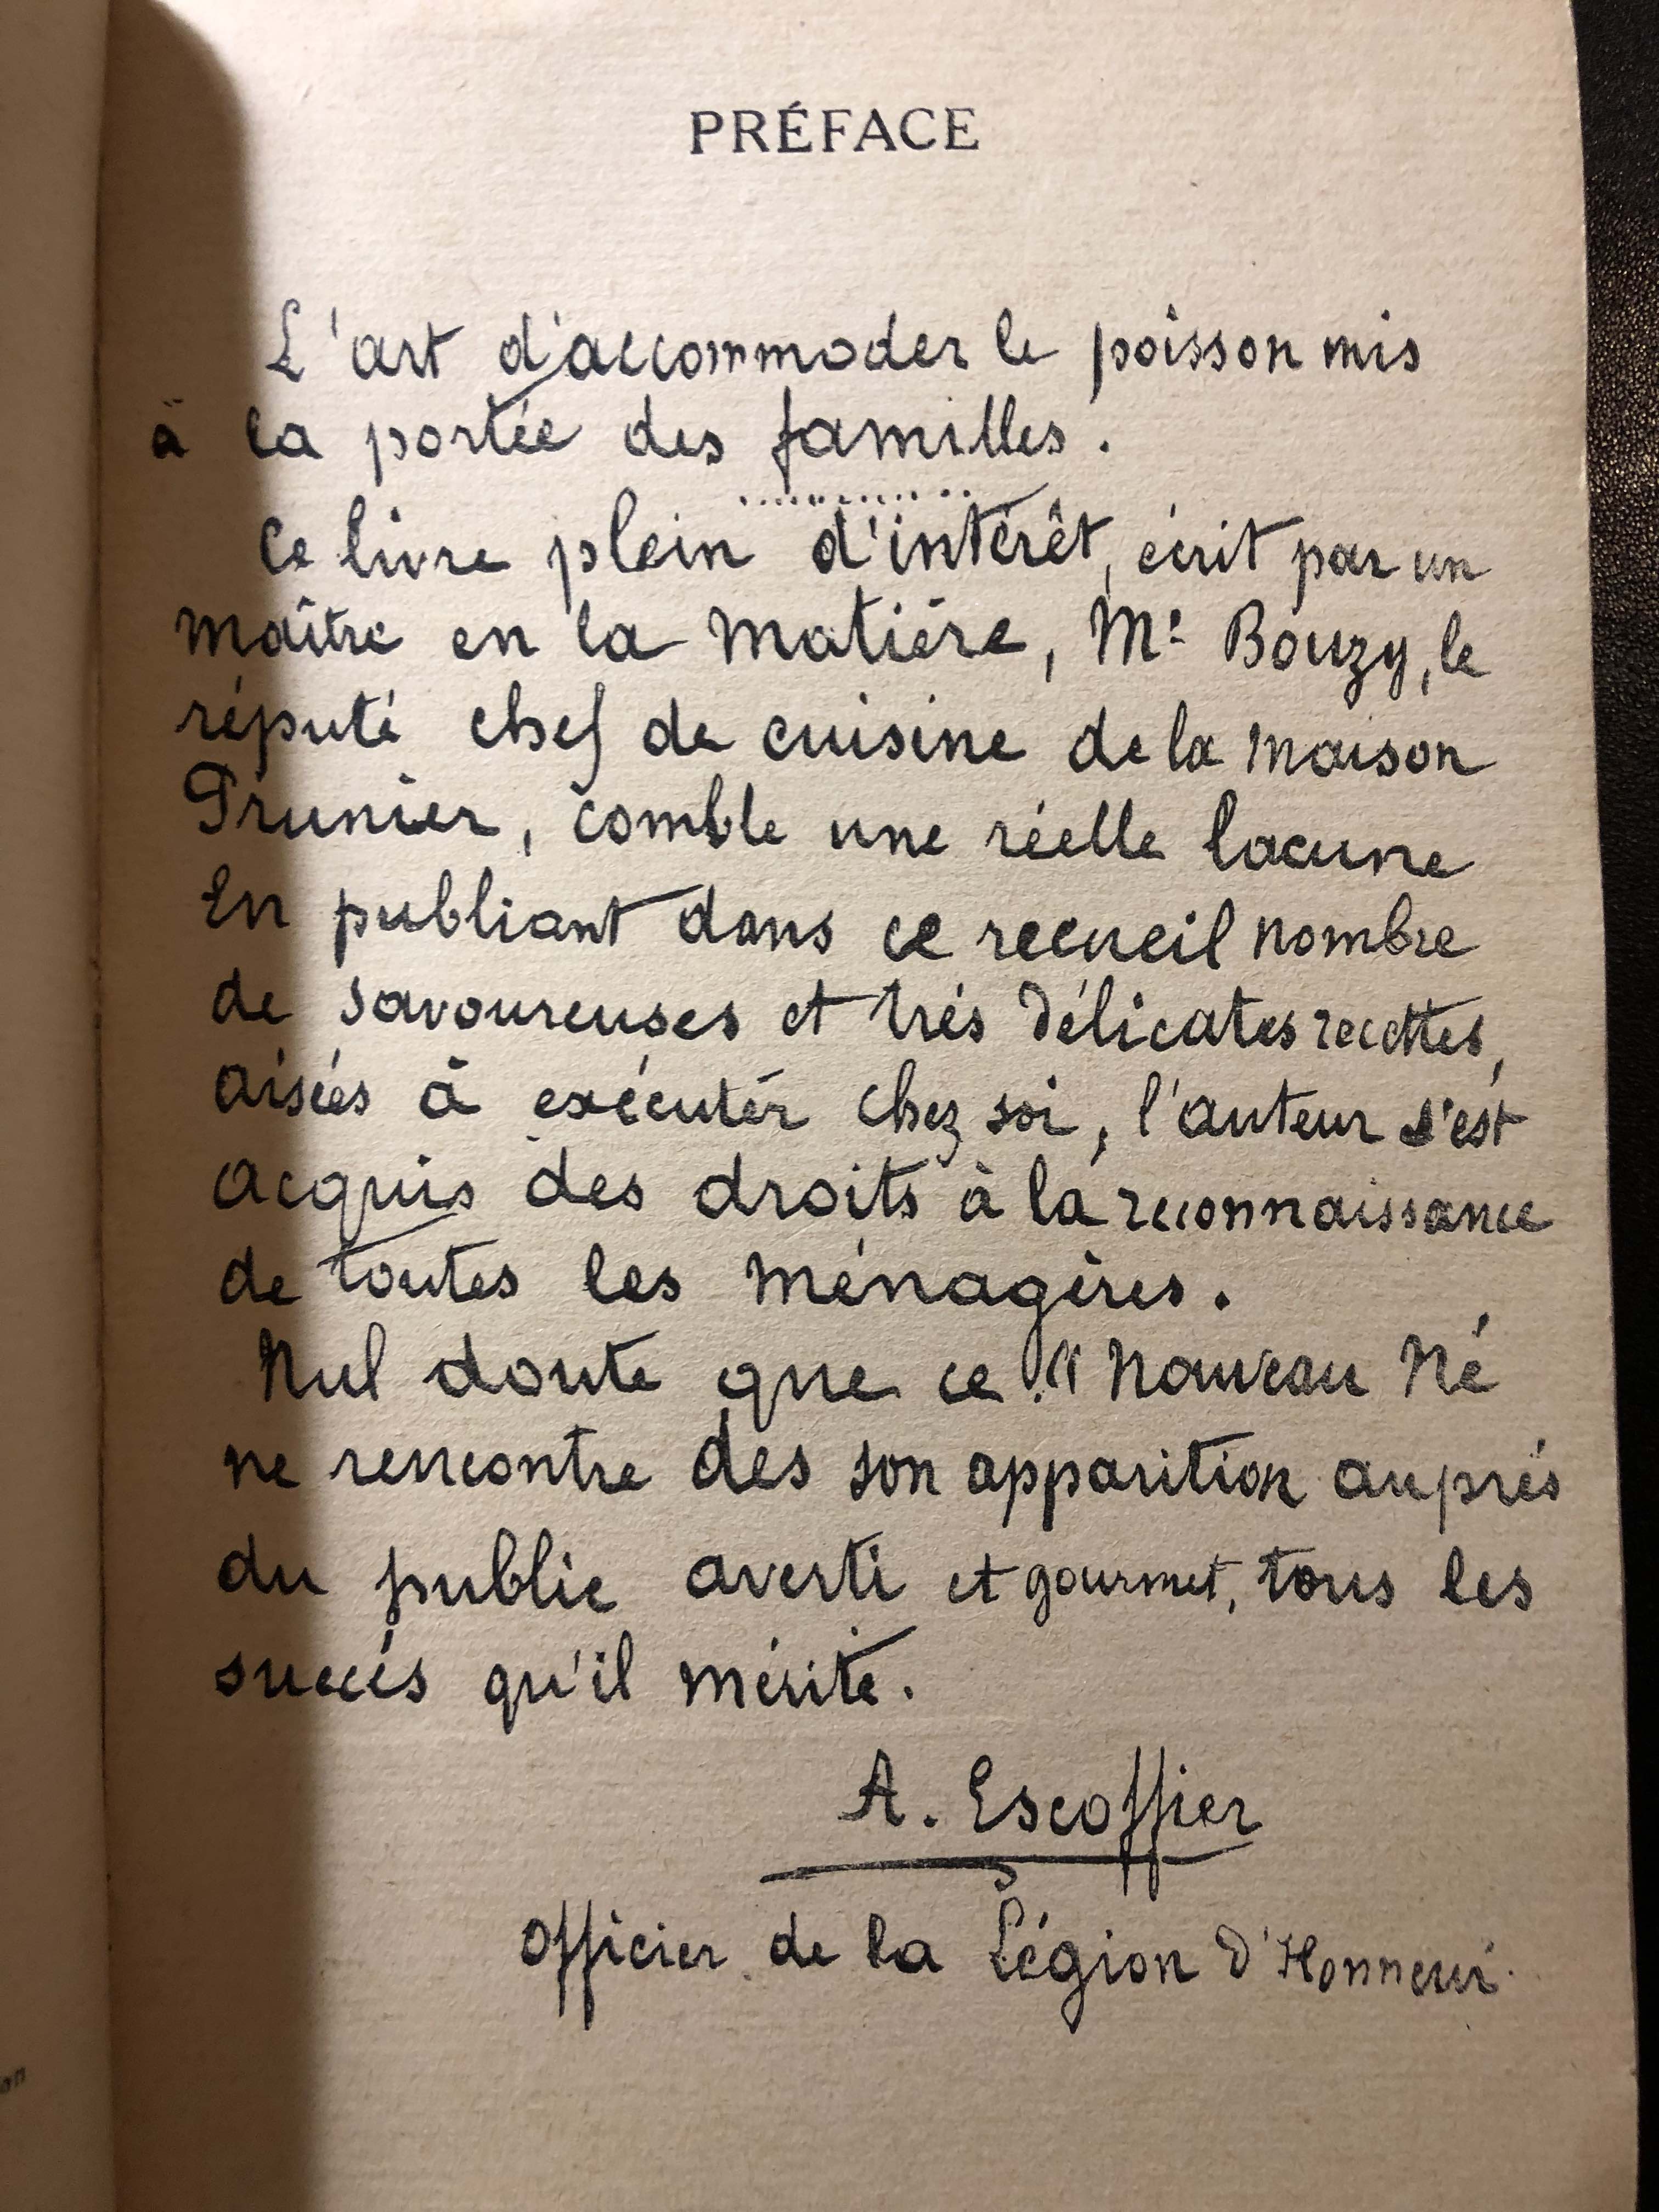 PRÉFACE
L'art d'accommoder le poisson mis
à la portée des familles.
............
Ce livre plein d'intérêt, écrit par un
maître en la matière, Mr Bouzy, le
réputé chef de cuisine de la maison
Prunier, comble une réelle lacune
En publiant dans ce recueil nombre
de savoureuses et très délicates recettes,
aisées à exécuter chez soi, l'auteur s'est
acquis des droits à la reconnaissance
de toutes les ménagères.
Nul doute que ce " Nouveau Né
ne rencontre des son apparition auprès
du public averti et gourmet, tous les
succès qu'il mérite.
A. Escoffier
Officier de la Légion d'Honneur.